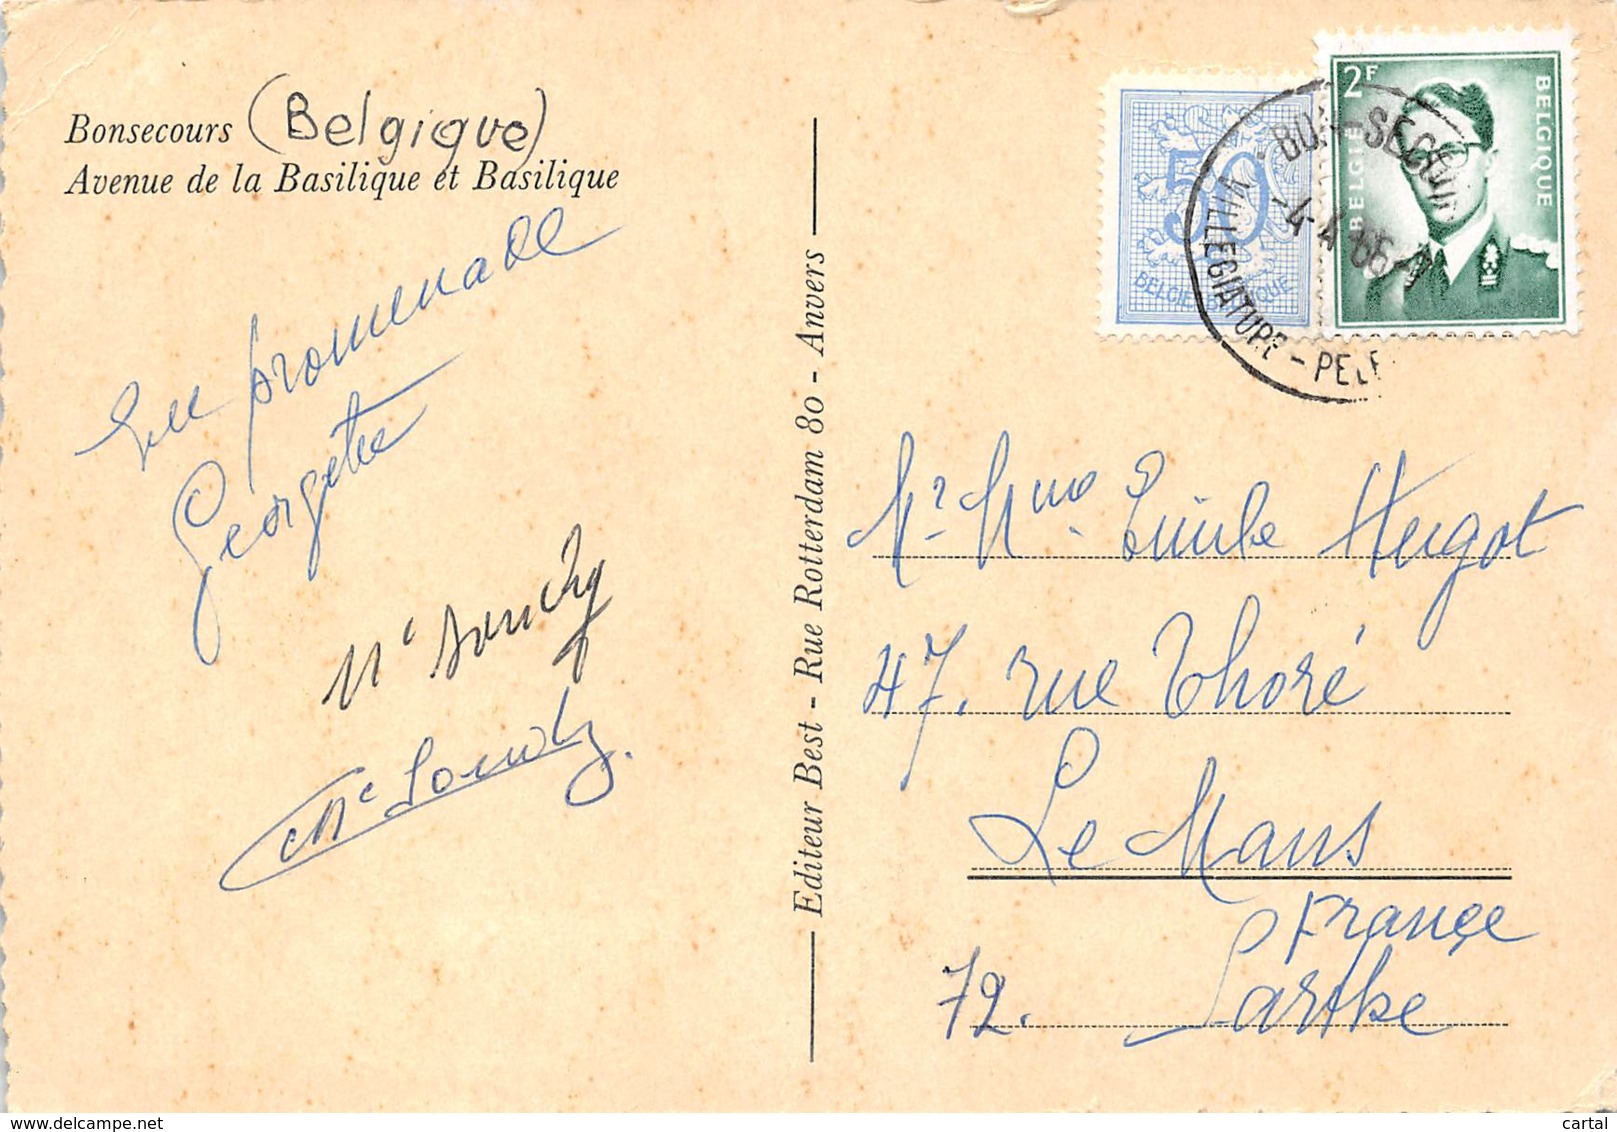 Bonsecours (Belgique)
Avenue de la Basilique et Basilique
En promenade
Georgette
Editeur Best - Rue Rotterdam 80 - Anvers
50
BELGIE BELGIQUE
2F
BELGIE
BELGIQUE
BON-SECOUR
-4-4
VILLEGIATURE - PELE
Mr Mme Emile Hugot
47, rue Thoré
Le Mans
France
72. Sarthe
www.delcampe.net
cartal